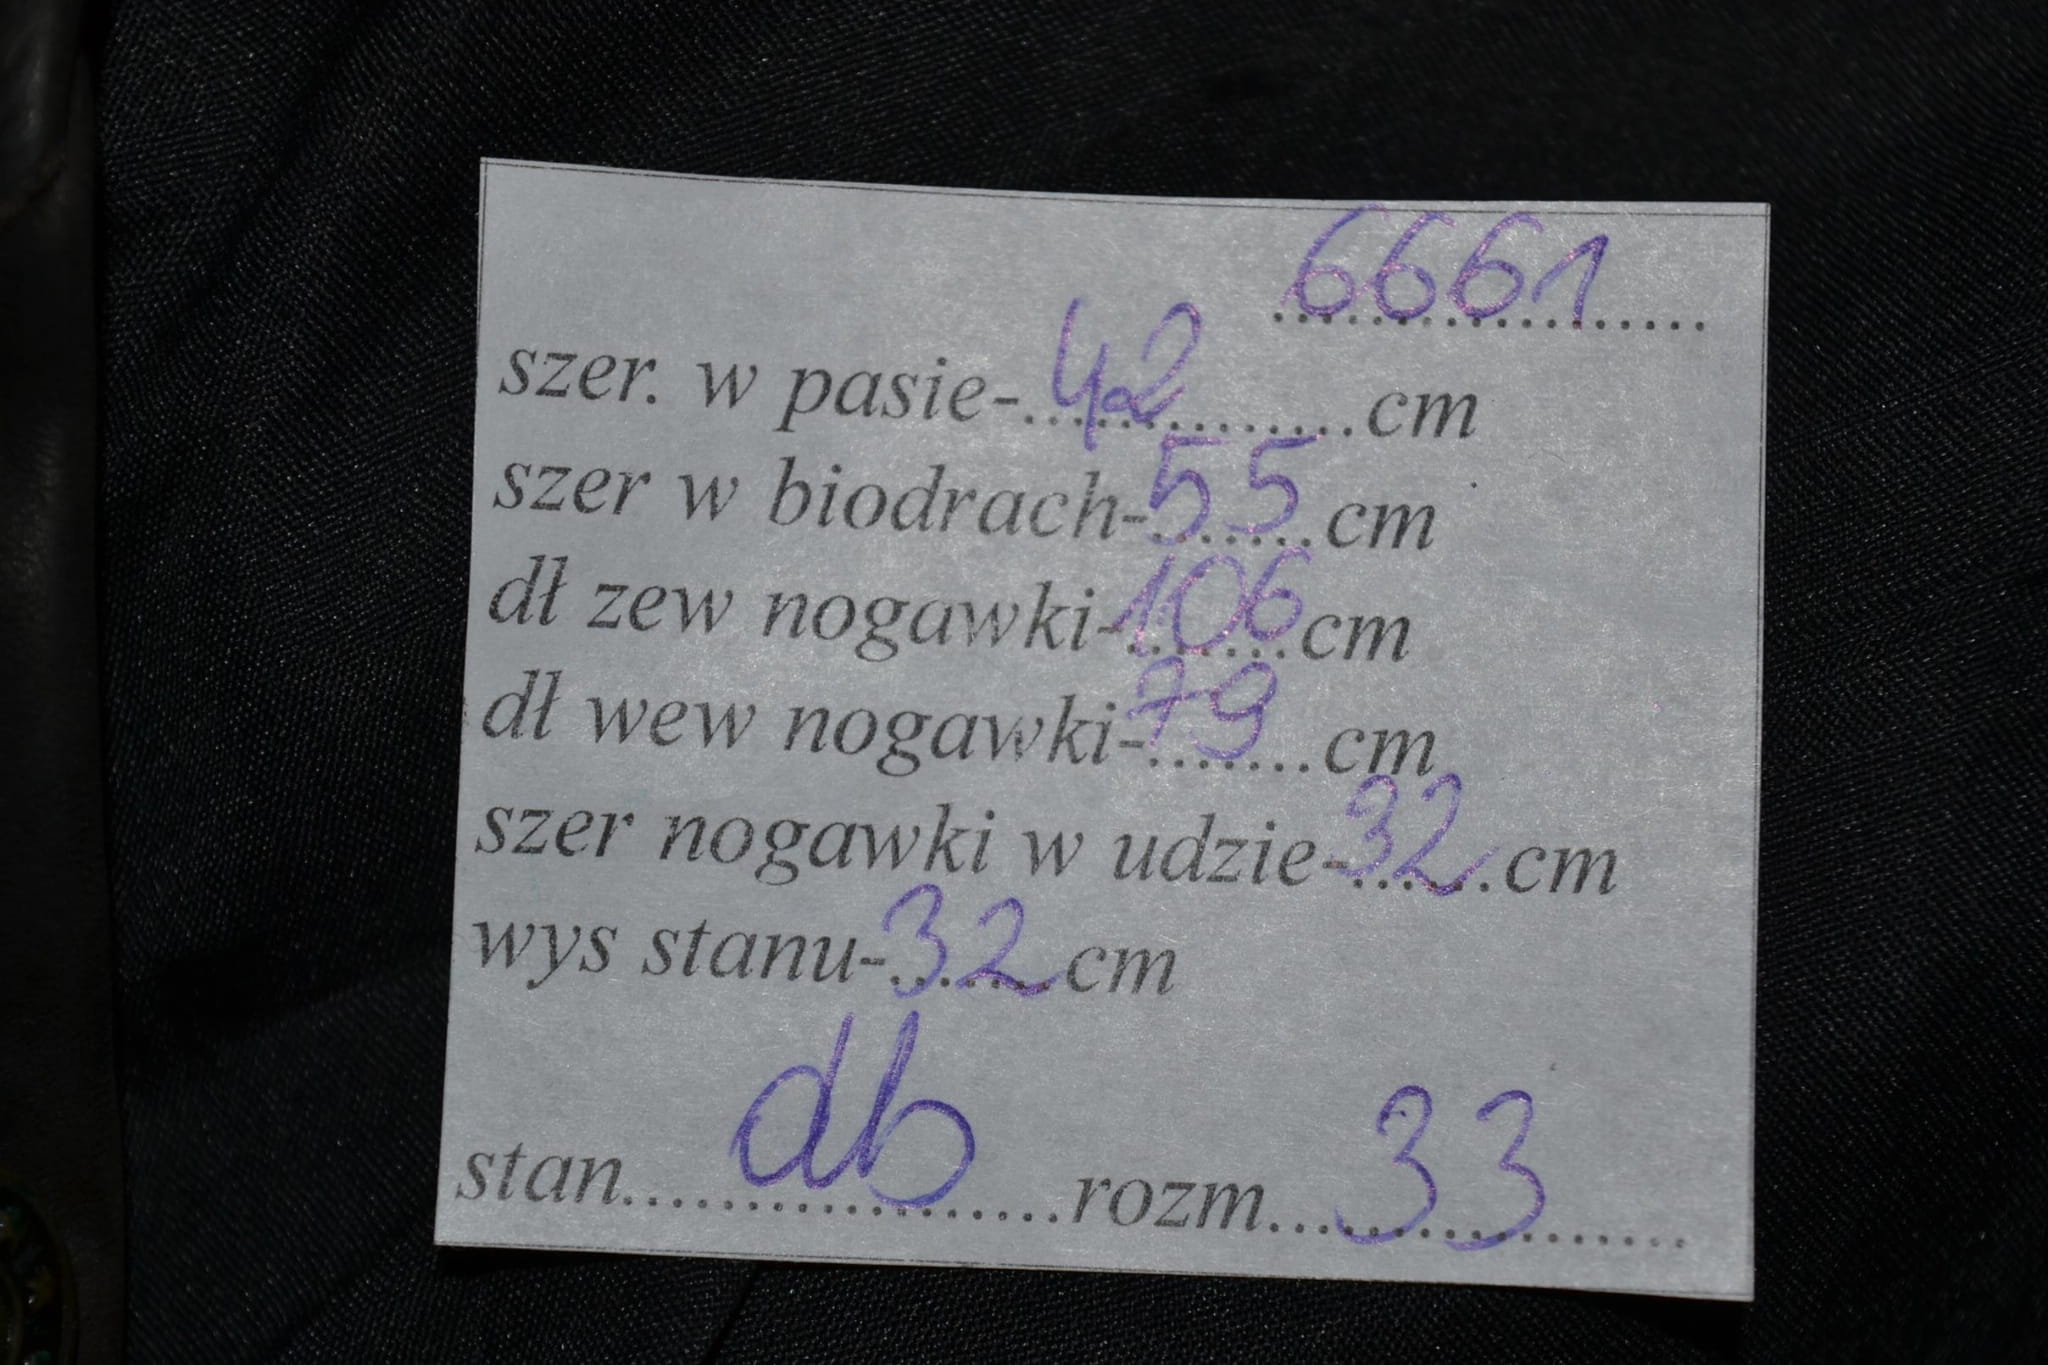 6661
szer. w pasie-42cm
szer w biodrach-55cm
dł zew nogawki-106cm
dł wew nogawki-79cm
szer nogawki w udzie-32cm
wys stanu-32cm
stan db rozm 33